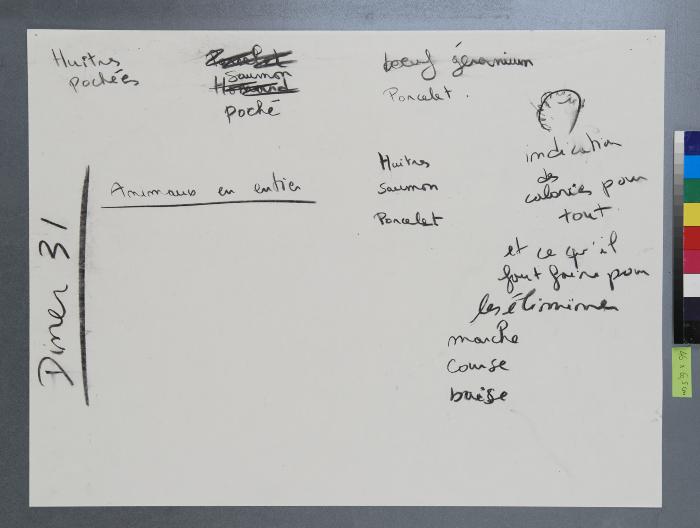 Huitres
pochées
Saumon
poché
boeuf géranium
Porcelet.
Animaux en entier
Huitres
Saumon
Porcelet
indication
des
calories pour
tout
et ce qu'il
faut faire pour
les éliminer
marche
course
baise
Diner 31